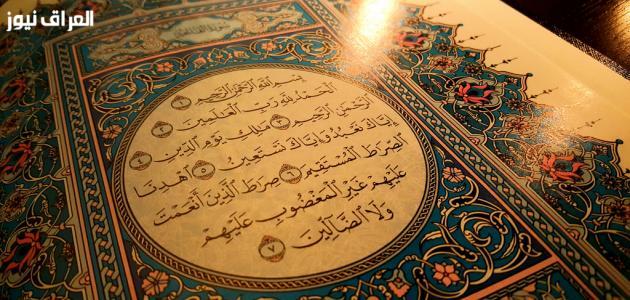 العراق نيوز
بِسْمِ ٱللَّهِ ٱلرَّحْمَٰنِ ٱلرَّحِيمِ ١
ٱلْحَمْدُ لِلَّهِ رَبِّ ٱلْعَٰلَمِينَ ٢
ٱلرَّحْمَٰنِ ٱلرَّحِيمِ ٣ مَٰلِكِ يَوْمِ ٱلدِّينِ ٤
إِيَّاكَ نَعْبُدُ وَإِيَّاكَ نَسْتَعِينُ ٥ ٱهْدِنَا
ٱلصِّرَٰطَ ٱلْمُسْتَقِيمَ ٦ صِرَٰطَ ٱلَّذِينَ أَنْعَمْتَ
عَلَيْهِمْ غَيْرِ ٱلْمَغْضُوبِ عَلَيْهِمْ
وَلَا ٱلضَّآلِّينَ ٧